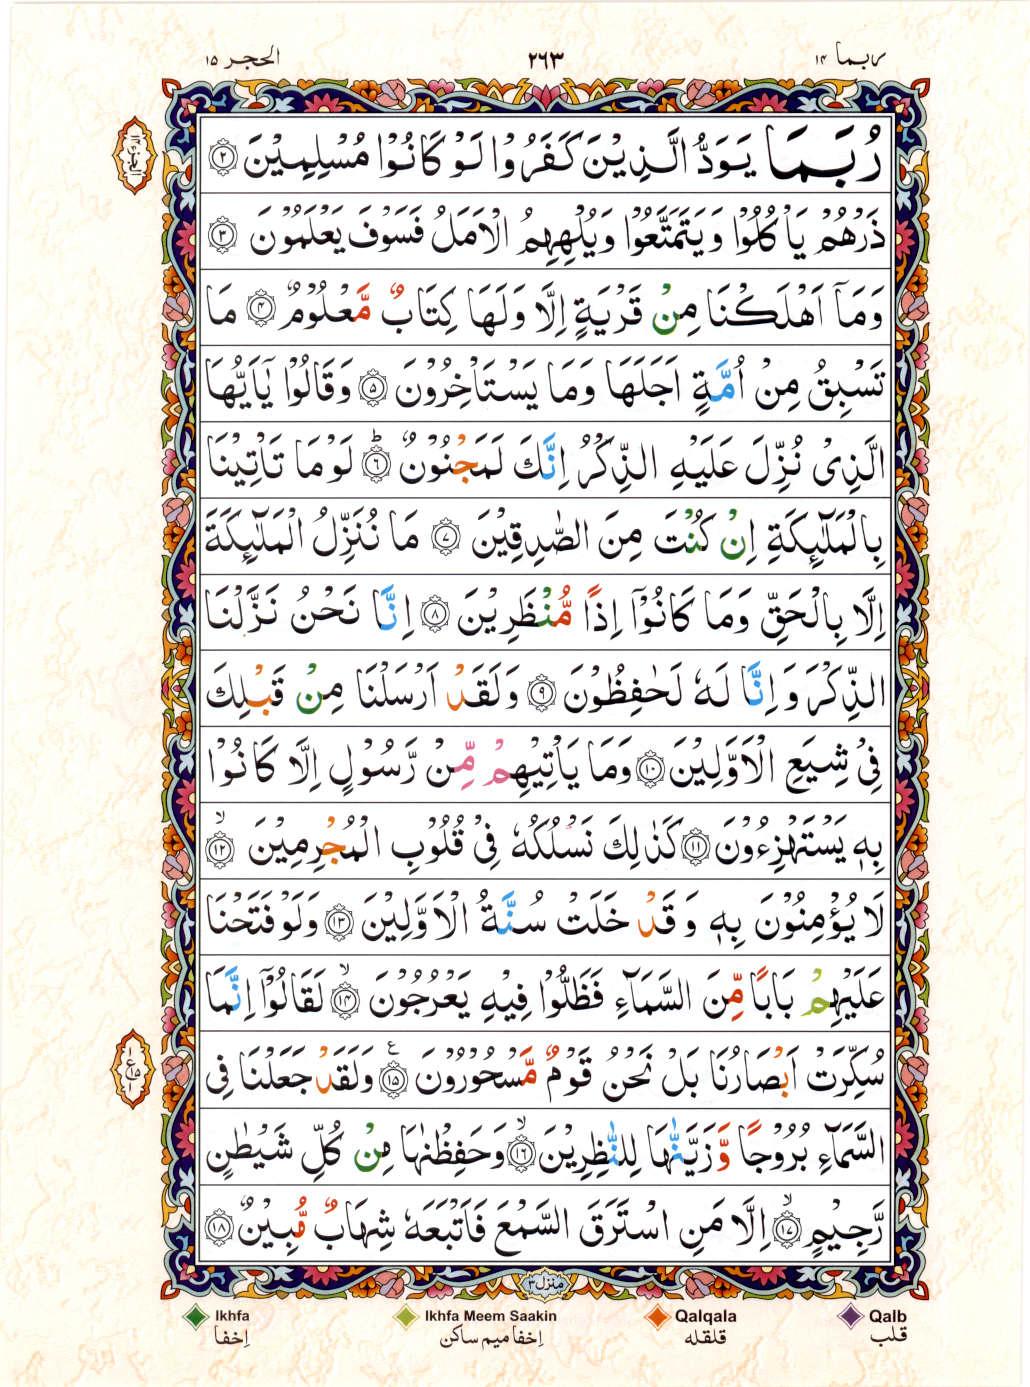 ربما ۱۴
۲۶۳
الحجر ۱۵
الجزء ۱۴
رُبَمَا يَوَدُّ الَّذِيْنَ كَفَرُوْا لَوْ كَانُوْا مُسْلِمِيْنَ ۝۲
ذَرْهُمْ يَاْكُلُوْا وَيَتَمَتَّعُوْا وَيُلْهِهِمُ الْاَمَلُ فَسَوْفَ يَعْلَمُوْنَ ۝۳
وَمَاۤ اَهْلَكْنَا مِنْ قَرْيَةٍ اِلَّا وَلَهَا كِتَابٌ مَّعْلُوْمٌ ۝۴ مَا
تَسْبِقُ مِنْ اُمَّةٍ اَجَلَهَا وَمَا يَسْتَاْخِرُوْنَ ۝۵ وَقَالُوْا يٰۤاَيُّهَا
الَّذِىْ نُزِّلَ عَلَيْهِ الذِّكْرُ اِنَّكَ لَمَجْنُوْنٌ ۝۶ؕ لَوْ مَا تَاْتِيْنَا
بِالْمَلٰٓئِكَةِ اِنْ كُنْتَ مِنَ الصّٰدِقِيْنَ ۝۷ مَا نُنَزِّلُ الْمَلٰٓئِكَةَ
اِلَّا بِالْحَقِّ وَمَا كَانُوْۤا اِذًا مُّنْظَرِيْنَ ۝۸ اِنَّا نَحْنُ نَزَّلْنَا
الذِّكْرَ وَاِنَّا لَهٗ لَحٰفِظُوْنَ ۝۹ وَلَقَدْ اَرْسَلْنَا مِنْ قَبْلِكَ
فِىْ شِيَعِ الْاَوَّلِيْنَ ۝۱۰ وَمَا يَاْتِيْهِمْ مِّنْ رَّسُوْلٍ اِلَّا كَانُوْا
بِهٖ يَسْتَهْزِءُوْنَ ۝۱۱ كَذٰلِكَ نَسْلُكُهٗ فِىْ قُلُوْبِ الْمُجْرِمِيْنَ ۝۱۲ۙ
لَا يُؤْمِنُوْنَ بِهٖ وَقَدْ خَلَتْ سُنَّةُ الْاَوَّلِيْنَ ۝۱۳ وَلَوْ فَتَحْنَا
عَلَيْهِمْ بَابًا مِّنَ السَّمَآءِ فَظَلُّوْا فِيْهِ يَعْرُجُوْنَ ۝۱۴ۙ لَقَالُوْۤا اِنَّمَا
سُكِّرَتْ اَبْصَارُنَا بَلْ نَحْنُ قَوْمٌ مَّسْحُوْرُوْنَ ۝۱۵ع وَلَقَدْ جَعَلْنَا فِى
السَّمَآءِ بُرُوْجًا وَّزَيَّنّٰهَا لِلنّٰظِرِيْنَ ۝۱۶ۙ وَحَفِظْنٰهَا مِنْ كُلِّ شَيْطٰنٍ
رَّجِيْمٍ ۝۱۷ۙ اِلَّا مَنِ اسْتَرَقَ السَّمْعَ فَاَتْبَعَهٗ شِهَابٌ مُّبِيْنٌ ۝۱۸
منزل ۳
Ikhfa
اِخفا
Ikhfa Meem Saakin
اِخفا میم ساکن
Qalqala
قلقله
Qalb
قلب